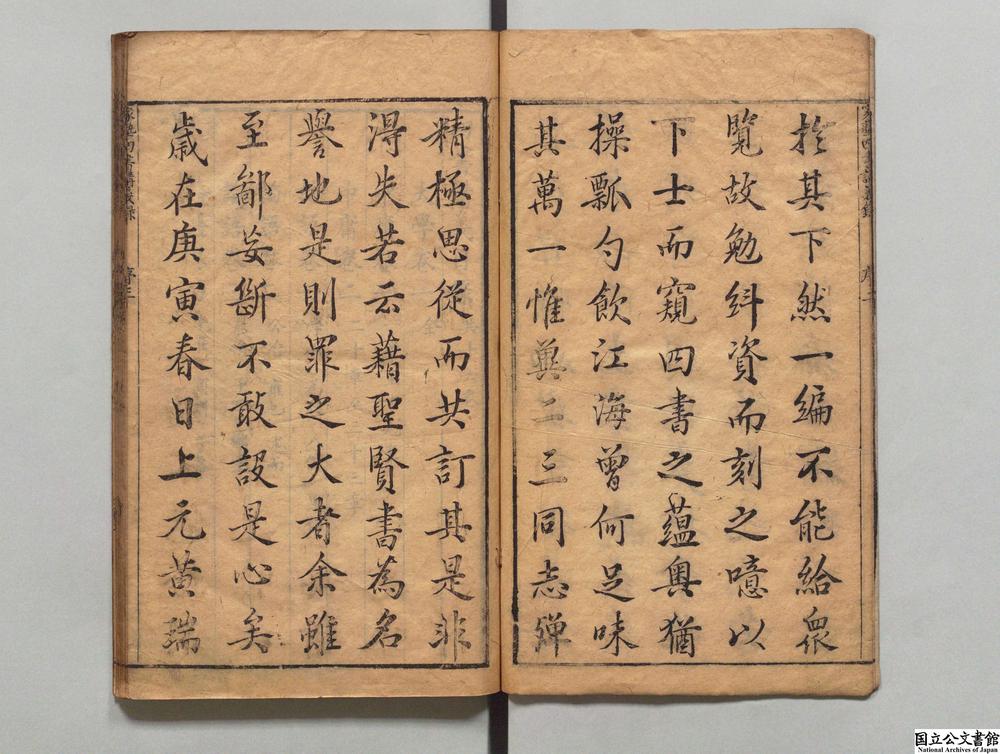 於其下然一編不能給眾
覽故勉糾資而刻之噫以
下士而窺四書之蘊奧猶
操瓢勺飲江海曾何足味
其萬一惟冀二三同志殫
精極思從而共訂其是非
得失若云藉聖賢書為名
譽地是則罪之大者余雖
至鄙妄斷不敢設是心矣
歲在庚寅春日上元黃瑞
序三
国立公文書館
National Archives of Japan